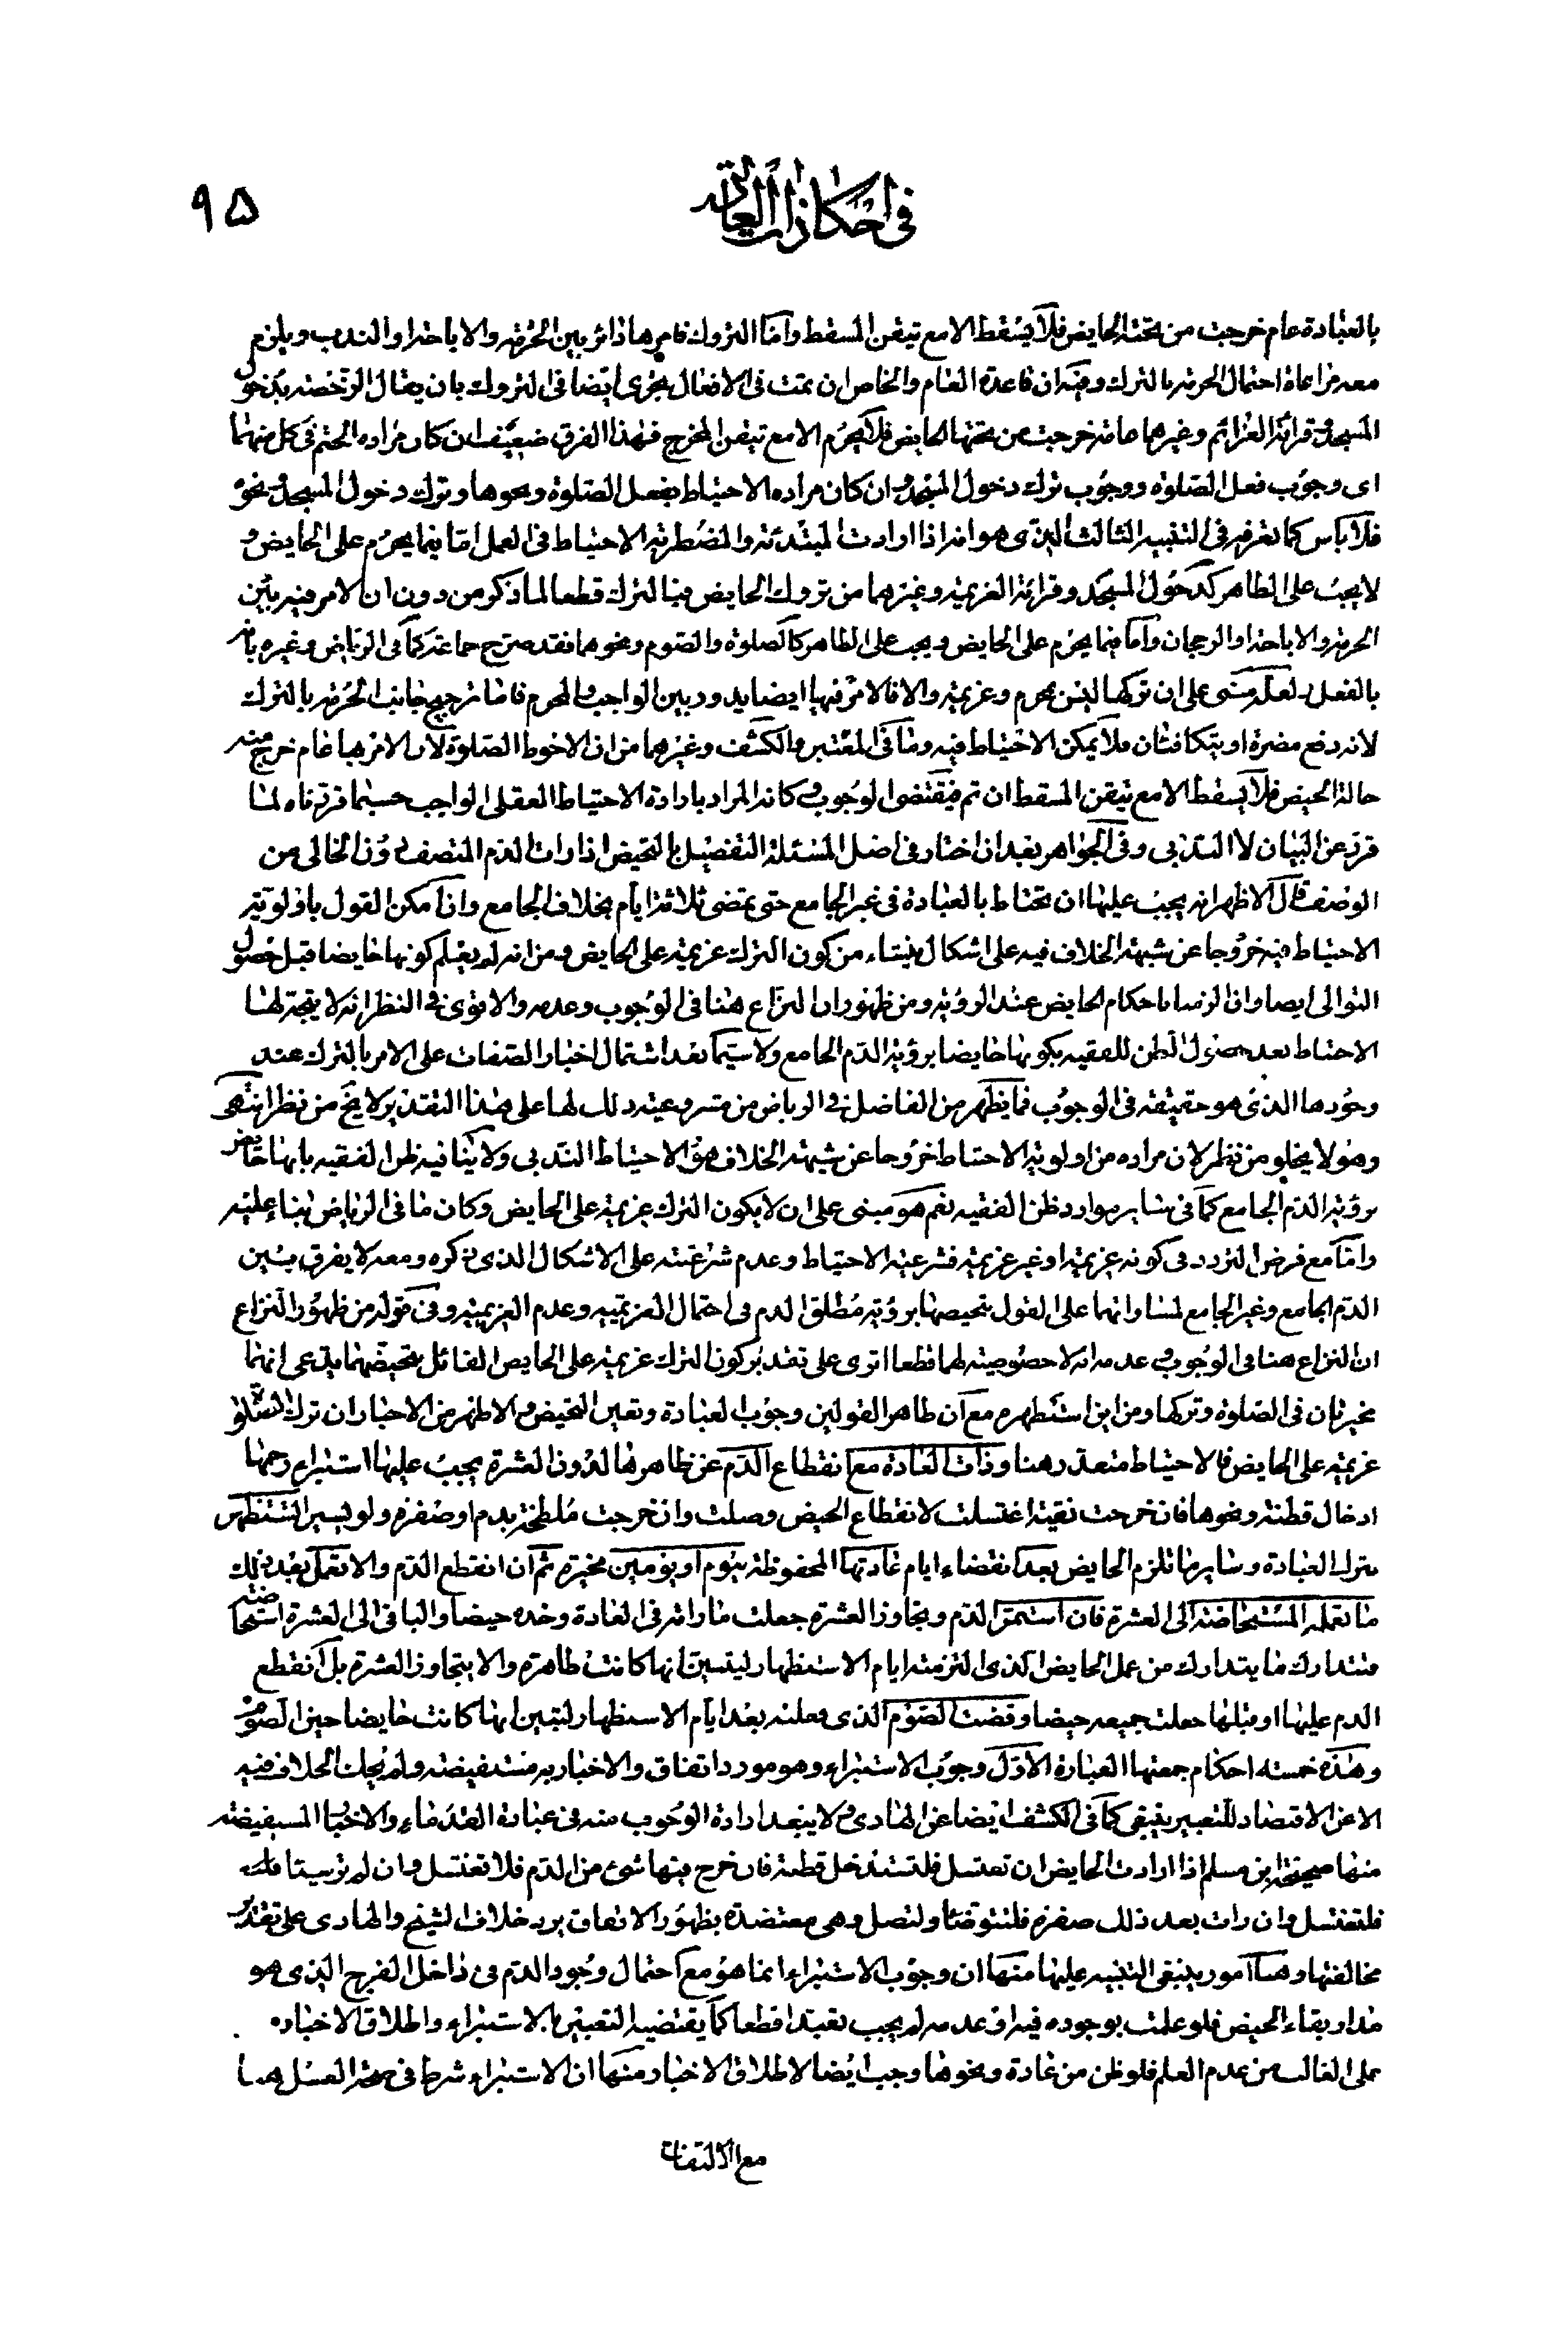 في احكام ذات العادة
٩٥
بالعبادة عام خرجت من تحته الحايض فلا يسقط الا مع تيقن المسقط وامّا التروك فامرها دائر بين الحرمة والاباحة او الندب ويلزم
معه مراعاة احتمال الحرمة بالترك وفيه ان قاعدة العام والخاص ان تمت في الافعال يجري ايضا في التروك بان يقال الرخصة بدخول
المسجد وقرائة العزائم وغيرهما عامة خرجت من تحتها الحايض فلا يحرم الا مع تيقن المخرج فهذا الفرق ضعيف ان كان مراده الحتم في كل منهما
اى وجوب فعل الصلوة ووجوب ترك دخول المسجد وان كان مراده الاحتياط بفعل الصلوة ونحوها وترك دخول المسجد ونحوه
فلا باس كما نعرفه في التنبيه الثالث الذى هو انه اذا ارادت المبتدئة والمضطربة الاحتياط في العمل امّا فيما يحرم على الحايض و
لا يجب على الطاهر كدخول المسجد وقرائة العزيمة وغيرهما من تروك الحايض فبالترك قطعا لما ذكر من دون ان الامر فيه بين
الحرمة والاباحة او الرجحان وامّا فيما يحرم على الحايض ويجب على الطاهر كالصلوة والصوم ونحوهما فقد صرح جماعة كما في الرياض وغيره بانه
بالفعل ولعله مبنى على ان تركها ليس بمحرم وعزيمة والا فالامر فيها ايضا يدور بين الواجب والمحرم فامّا ترجيح جانب الحرمة بالترك
لانه دفع مضرة او يتكافئان فلا يمكن الاحتياط فيه وما في المعتبر والكشف وغيرهما من ان الاحوط الصلوة لان الامر بها عام خرج منه
حالة الحيض فلا يسقط الا مع تيقن المسقط ان تم فيقتضى الوجوب وكانه المراد بارادة الاحتياط العقلى الواجب حسبما قررناه لما
قرر عن البيان لا الندبى وفى الجواهر بعد ان اختار في اصل المسئلة التفصيل بالتحيض اذا رات الدم المتصف دون الخالى من
الوصف قال الاظهر انه يجب عليها ان تحتاط بالعبادة في غير الجامع حتى تمضى ثلاثة ايام بخلاف الجامع وان امكن القول باولوية
الاحتياط فيه خروجا عن شبهة الخلاف فيه على اشكال ينشاء من كون الترك عزيمة على الحايض ومن انه لم يعلم كونها حايضا قبل حصول
التوالى ايضا وان الزمناها باحكام الحايض عند الرؤية ومن ظهور ان النزاع هنا في الوجوب وعدمه والاقوى في النظر انه لا يتجه لها
الاحتياط بعد حصول الظن للفقيه بكونها حايضا برؤية الدم الجامع ولا سيّما بعد اشتمال اخبار الصفات على الامر بالترك عند
وجودها الذى هو حقيقة في الوجوب فما يظهر من الفاضل في الرياض من مشروعية ذلك لها على هذا التقدير لا يخ من نظر انتهى
وهو لا يخلو من نظر لان مراده من اولوية الاحتياط خروجا عن شبهة الخلاف هو الاحتياط الندبى ولا ينافيه ظن الفقيه بانها حايض
برؤية الدم الجامع كما في ساير موارد ظن الفقيه نعم هو مبنى على ان لا يكون الترك عزيمة على الحايض وكان ما في الرياض بناء عليه
وامّا مع فرض التردد في كونه عزيمة او غير عزيمة فشرعية الاحتياط وعدم شرعيته على الاشكال الذى ذكره ومعه لا يفرق بين
الدم الجامع وغير الجامع لمساواتهما على القول بتحيضها برؤية مطلق الدم في احتمال العزيمية وعدم العزيمية وفى قوله من ظهور النزاع
ان النزاع هنا في الوجوب وعدمه انه لا خصوصية لهما قطعا اترى على تقدير كون الترك عزيمة على الحايض القائل بتحيضهما يدعى انهما
مخيرتان في الصلوة وتركها ومن اين استظهره مع ان ظاهر القولين وجوب العبادة وتعين التحيض والاظهر من الاخبار ان ترك الصلوة
عزيمة على الحايض فالاحتياط متعذر هنا وذات العادة مع انقطاع الدم عن ظاهرها لدون العشرة يجب عليها استبراء رحمها
ادخال قطنة ونحوها فان خرجت نقية اغتسلت لانقطاع الحيض وصلت وان خرجت ملطخة بدم او صفرة ولو يسيرا تستظهر
بترك العبادة وساير ما تلزم الحايض بعد انقضاء ايام عادتها المحفوظة بيوم او يومين مخيرة ثم ان انقطع الدم والا تعمل بعد ذلك
ما تعمله المستحاضة الى العشرة فان استمر الدم وتجاوز العشرة جعلت ما راته في العادة وحده حيضا والباقى الى العشرة استحاضة
فتتدارك ما يتدارك من عمل الحايض الذى التزمته ايام الاستظهار ليتبين انها كانت طاهرة والا يتجاوز العشرة بل انقطع
الدم عليها او قبلها جعلت جميعه حيضا وقضت الصوم الذى فعلته بعد ايام الاستظهار لتبين انها كانت حايضا حين الصوم
وهذه خمسة احكام جمعتها العبارة الاول وجوب الاستبراء وهو مورد اتفاق والاخبار به مستفيضة ولم يحك الخلاف فيه
الا عن الاقتصاد للتعبير بينبغى كما في الكشف ايضا عن الهادى ولا يبعد ارادة الوجوب منه في عبارة القدماء والاخبار المستفيضة
منها صحيحة ابن مسلم اذا ارادت الحايض ان تغتسل فلتستدخل قطنة فان خرج فيها شئ من الدم فلا تغتسل وان لم تر شيئا
فلتغتسل وان رات بعد ذلك صفرة فلتتوضئا ولتصل وهى معتضدة بظهور الاتفاق بردّ خلاف الشيخ والهادى على تقدير
مخالفتها وهنا امور ينبغى التنبيه عليها منها ان وجوب الاستبراء انما هو مع احتمال وجود الدم في داخل الفرج الذى هو
مدار بقاء الحيض فلو علمت بوجوده فيه او عدمه لم يجب تعبدا قطعا كما يقتضيه التعبير بالاستبراء واطلاق الاخباره
على الغالب من عدم العلم فلو ظن من عادة ونحوها وجب ايضا لاطلاق الاخبار منها ان الاستبراء شرط في صحة الغسل
مع الالتفات